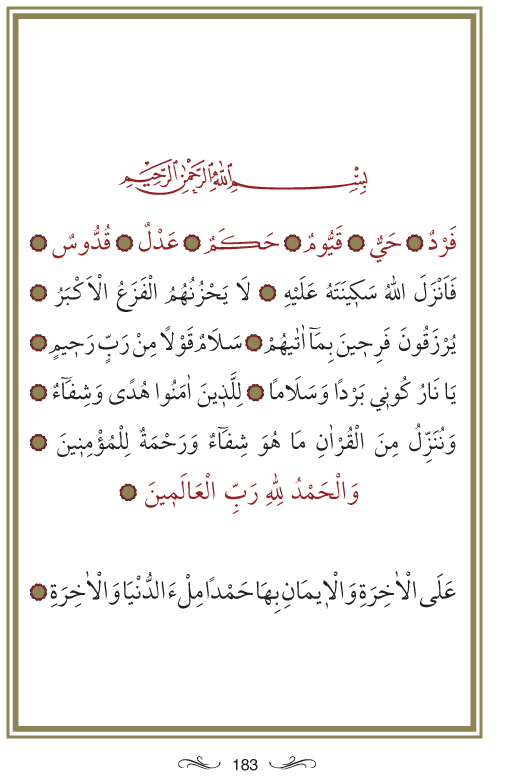 بِسْمِ اللهِ الرَّحْمٰنِ الرَّحِيمِ
فَرْدٌ ۞ حَيٌّ ۞ قَيُّومٌ ۞ حَكَمٌ ۞ عَدْلٌ ۞ قُدُّوسٌ ۞
فَاَنْزَلَ اللهُ سَكِينَتَهُ عَلَيْهِ ۞ لَا يَحْزُنُهُمُ الْفَزَعُ الْاَكْبَرُ ۞
يُرْزَقُونَ فَرِحِينَ بِمَٓا اٰتٰيهُمْ ۞ سَلَامٌ قَوْلًا مِنْ رَبٍّ رَحِيمٍ ۞
يَا نَارُ كُونِي بَرْدًا وَسَلَامًا ۞ لِلَّذِينَ اٰمَنُوا هُدًى وَشِفَٓاءٌ ۞
وَنُنَزِّلُ مِنَ الْقُرْاٰنِ مَا هُوَ شِفَٓاءٌ وَرَحْمَةٌ لِلْمُؤْمِنِينَ ۞
وَالْحَمْدُ لِلّٰهِ رَبِّ الْعَالَمِينَ ۞
عَلَى الْاٰخِرَةِ وَالْاِيمَانِ بِهَا حَمْدًا مِلْءَ الدُّنْيَا وَالْاٰخِرَةِ ۞
183